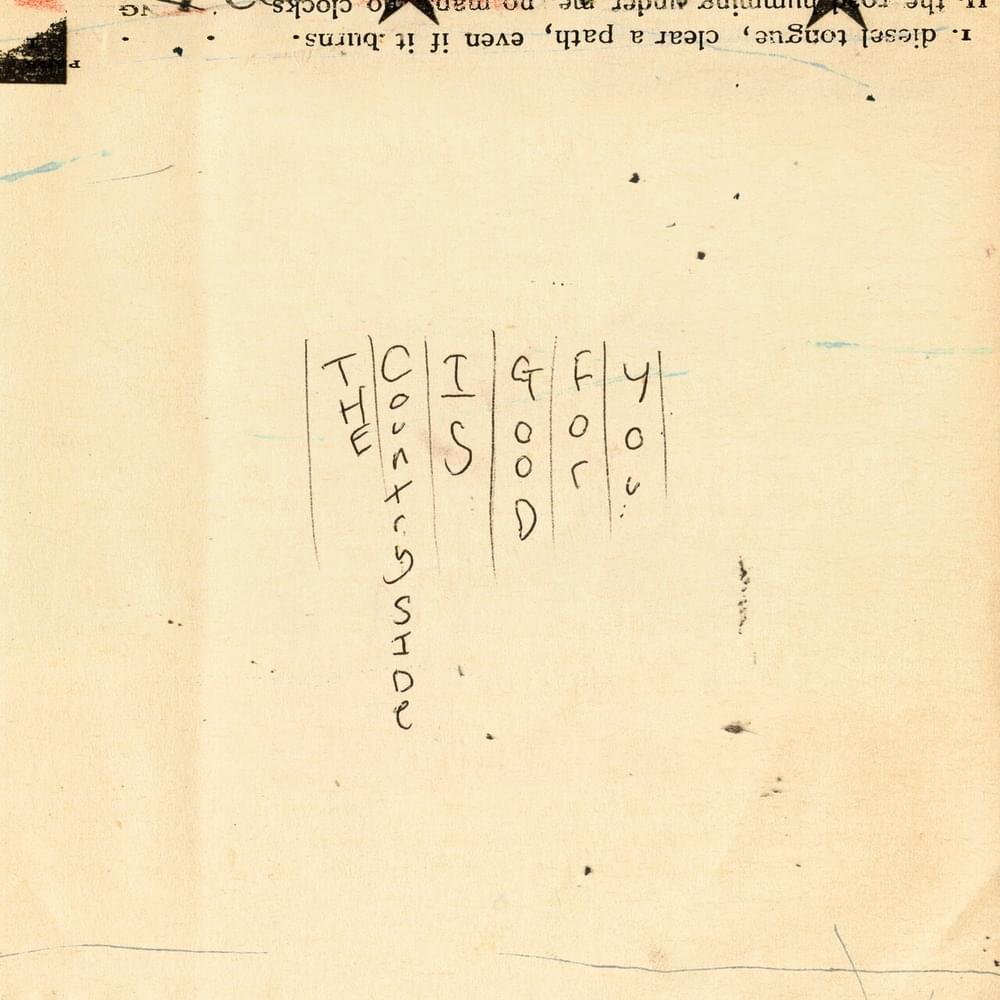 I. diesel tongue, clear a path, even if it burns.
II. the road humming under me, no no clocks
THE
CountrySIDe
IS
GooD
For
You